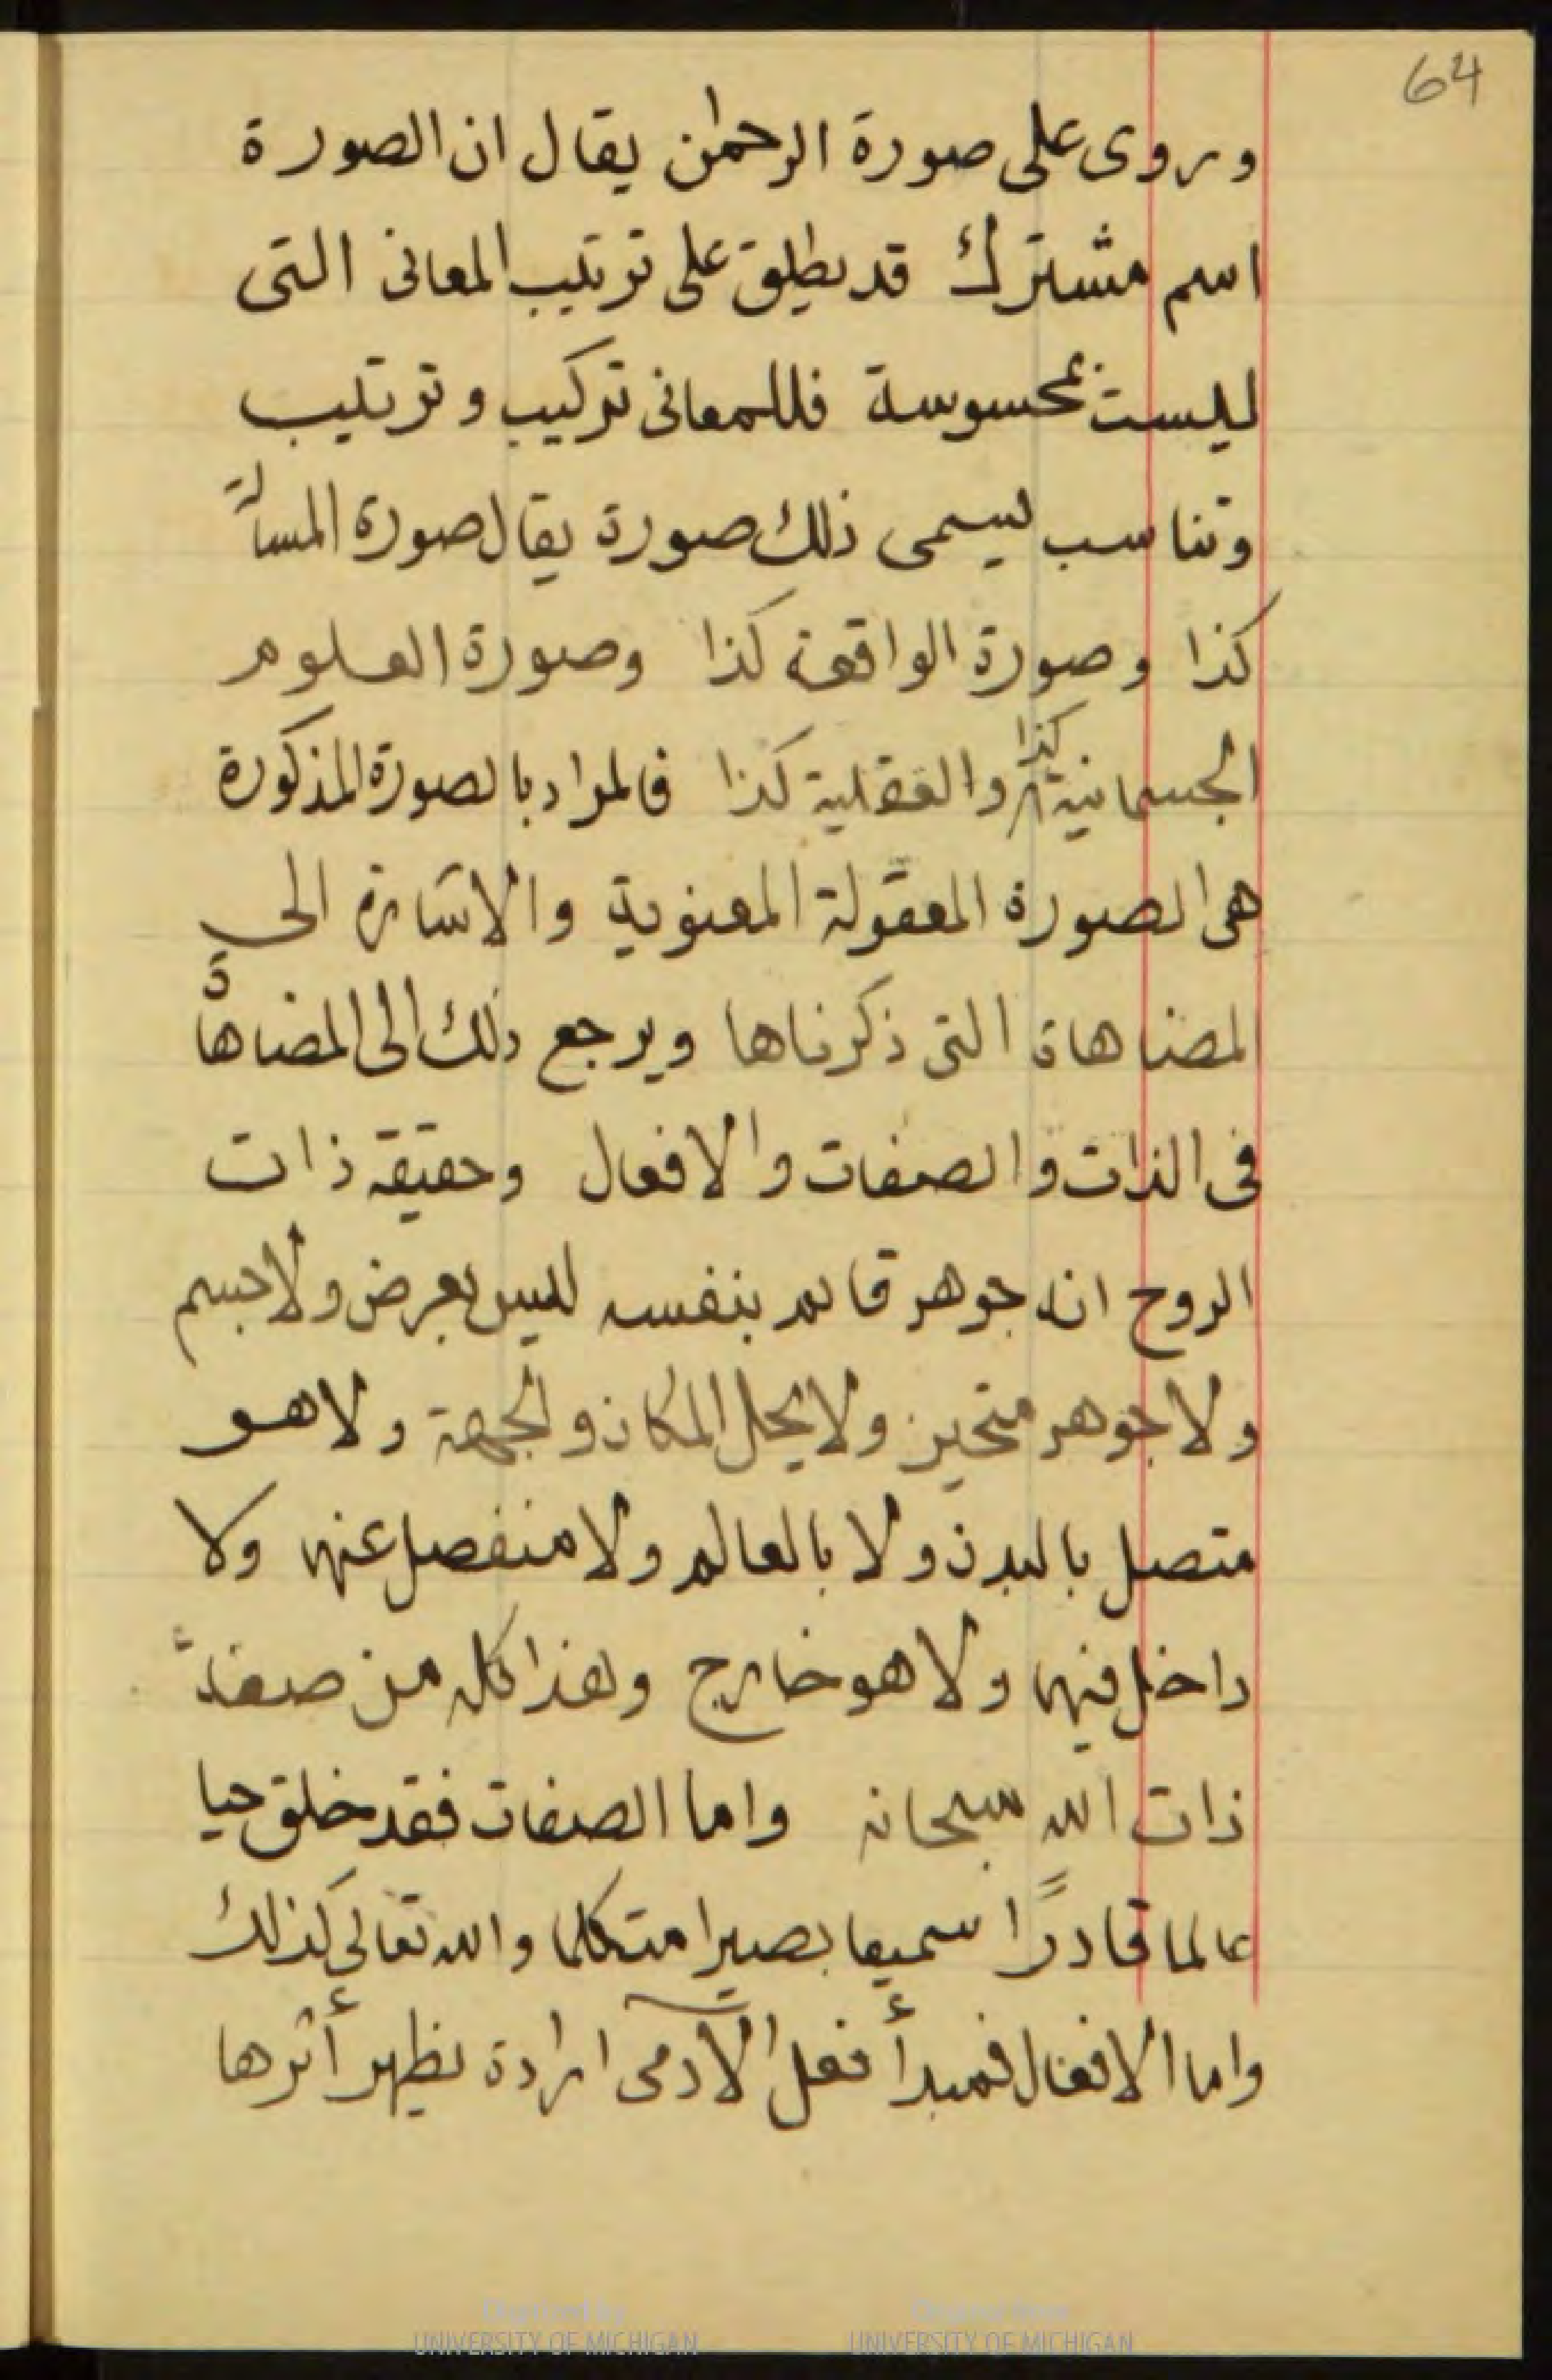 64
وروى على صورة الرحمٰن يقال ان الصورة
اسم مشترك قد يطلق على ترتيب المعانى التى
ليست بمحسوسة فللمعانى تركيب وترتيب
وتناسب ليسمى ذلك صورة يقال صورة المسألة
كذا وصورة الواقعة كذا وصورة العلوم
الجسمانية كذا والعقلية كذا فالمراد بالصورة المذكورة
هى الصورة المعقولة المعنوية والاشارة الى
المضاهاة التى ذكرناها ويرجع ذلك الى المضاهاة
فى الذات والصفات والافعال وحقيقة ذات
الروح انه جوهر قائم بنفسه ليس بعرض ولا جسم
ولا جوهر متحيز ولا يحل المكان ولجهة ولا هو
متصل بالبدن ولا بالعالم ولا منفصل عنهما ولا
داخل فيهما ولا هو خارج وهذا كله من صفة
ذات الله سبحانه واما الصفات فقد خلق حيا
عالما قادرًا سميعا بصيرا متكلما والله تعالى كذلك
واما الافعال فمبدأ فعل الآدمى ارادة يظهر أثرها
Digitized by
UNIVERSITY OF MICHIGAN
Original from
UNIVERSITY OF MICHIGAN